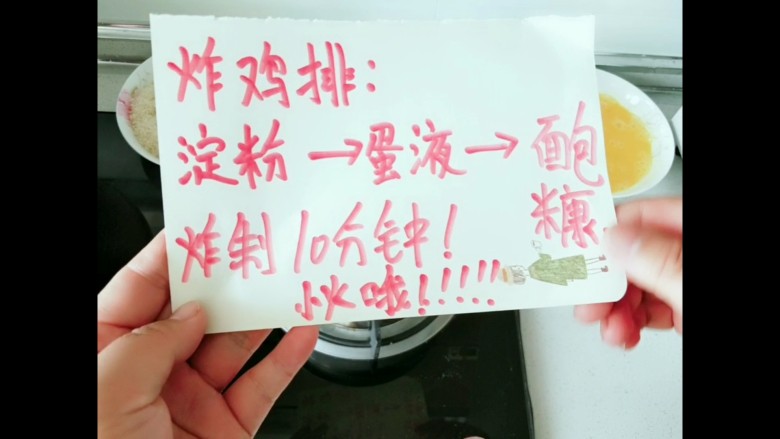 炸鸡排:
淀粉→蛋液→面包糠
炸制10分钟!
小火哦!!!!!